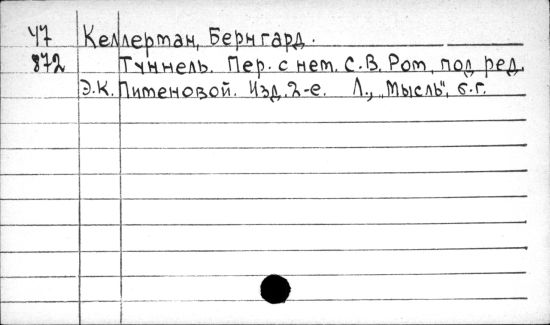 47 Келлерман, Бернгард.
872 Туннель. Пер. с нем. С.В. Ром, под ред.
Э.К. Пименовой. Изд. 2-е. Л., „Мысль", б.г.